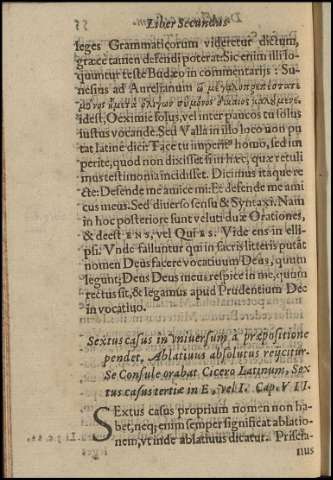 Liber Secundus
leges Grammaticorum videretur dictum,
græce tamen defendi poterat: Sic enim illi lo-
quuntur teste Budæo in commentarijs: Si-
nesius ad Aurelianum ὦ
μόνος ὀλίγων
idest, O eximie solus, vel inter paucos tu solus
iustus vocande. Sed Valla in illo loco non pu
tat latinè dici: Tace tu imperite homo, sed im
perite, quod non dicisset si in hæc, quæ retuli
mus testimonia incidisset. Dicimus itaque re
cte: Defende me amice mi: Et defende me ami
cus meus. Sed diverso sensu & Syntaxi. Nam
in hoc posteriore sunt veluti duæ Orationes,
& deest ENS, vel Qui ES. Vide ens in elli-
psi. Vnde falluntur qui in sacris litteris putāt
nomen Deus facere vocatiuum Deus, quum
legunt; Deus Deus meus respice in me, quum
rectus sit, & legamus apud Prudentium Dee
in vocatiuo.
Sextus casus in vniuersum à præpositione
pendet, Ablatiuus absolutus reijcitur.
Se Consule orabat Cicero Latinum, Sex
tus casus tertiæ in E, vel I. Cap. VII.
SExtus casus proprium nomen non ha-
bet, neq; enim semper significat ablatio-
nem, vt inde ablatiuus dicatur. Priscia-
nus